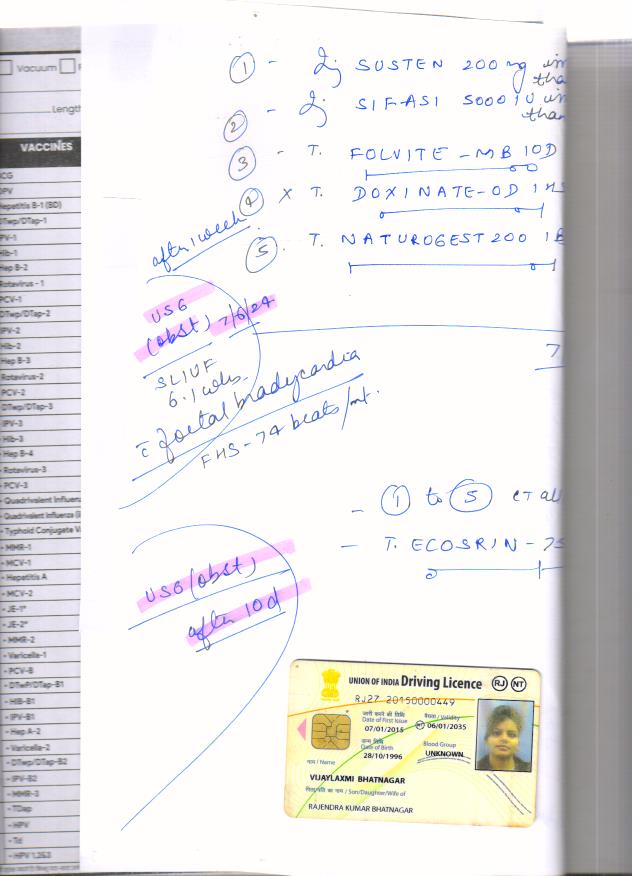 Vacuum
Length
VACCINES
BCG
OPV
Hepatitis B-1 (BD)
DTwp/DTap-1
IPV-1
Hib-1
Hep B-2
Rotavirus - 1
PCV-1
DTwp/DTap-2
IPV-2
Hib-2
Hep B-3
Rotavirus-2
PCV-2
DTwp/DTap-3
IPV-3
Hib-3
Hep B-4
Rotavirus-3
PCV-3
Quadrivalent Influen
Quadrivalent Influenza (I
Typhoid Conjugate V
MMR-1
MCV-1
Hepatitis A
MCV-2
JE-1*
JE-2*
MMR-2
Varicella-1
PCV-B
DTwP/DTap-B1
HIB-B1
IPV-B1
Hep A-2
Varicella-2
DTwp/DTap-B2
IPV-B2
MMR-3
TDap
HPV
Td
HPV 1,2&3
① - Inj SUSTEN 200 mg im
than
② - Inj SIFASI 5000 IU im
than
③ - T. FOLVITE-MB 1OD
④ X T. DOXINATE-OD 1HS
after 1 week
⑤ T. NATUROGEST 200 1B
USG
(obst) 7/6/24
SLIUF
6.1 wks
c̄ foetal bradycardia
FHS-74 beats/mt.
7
- ① to ⑤ CT all
- T. ECOSRIN-75
USG (obst)
after 10d
UNION OF INDIA Driving Licence RJ NT
RJ27 20150000449
जारी करने की तिथि
Date of First Issue
07/01/2015
वैधता / Validity
NT 06/01/2035
जन्म तिथि
Date of Birth
28/10/1996
Blood Group
UNKNOWN
नाम / Name
VIJAYLAXMI BHATNAGAR
पिता/पति का नाम / Son/Daughter/Wife of
RAJENDRA KUMAR BHATNAGAR